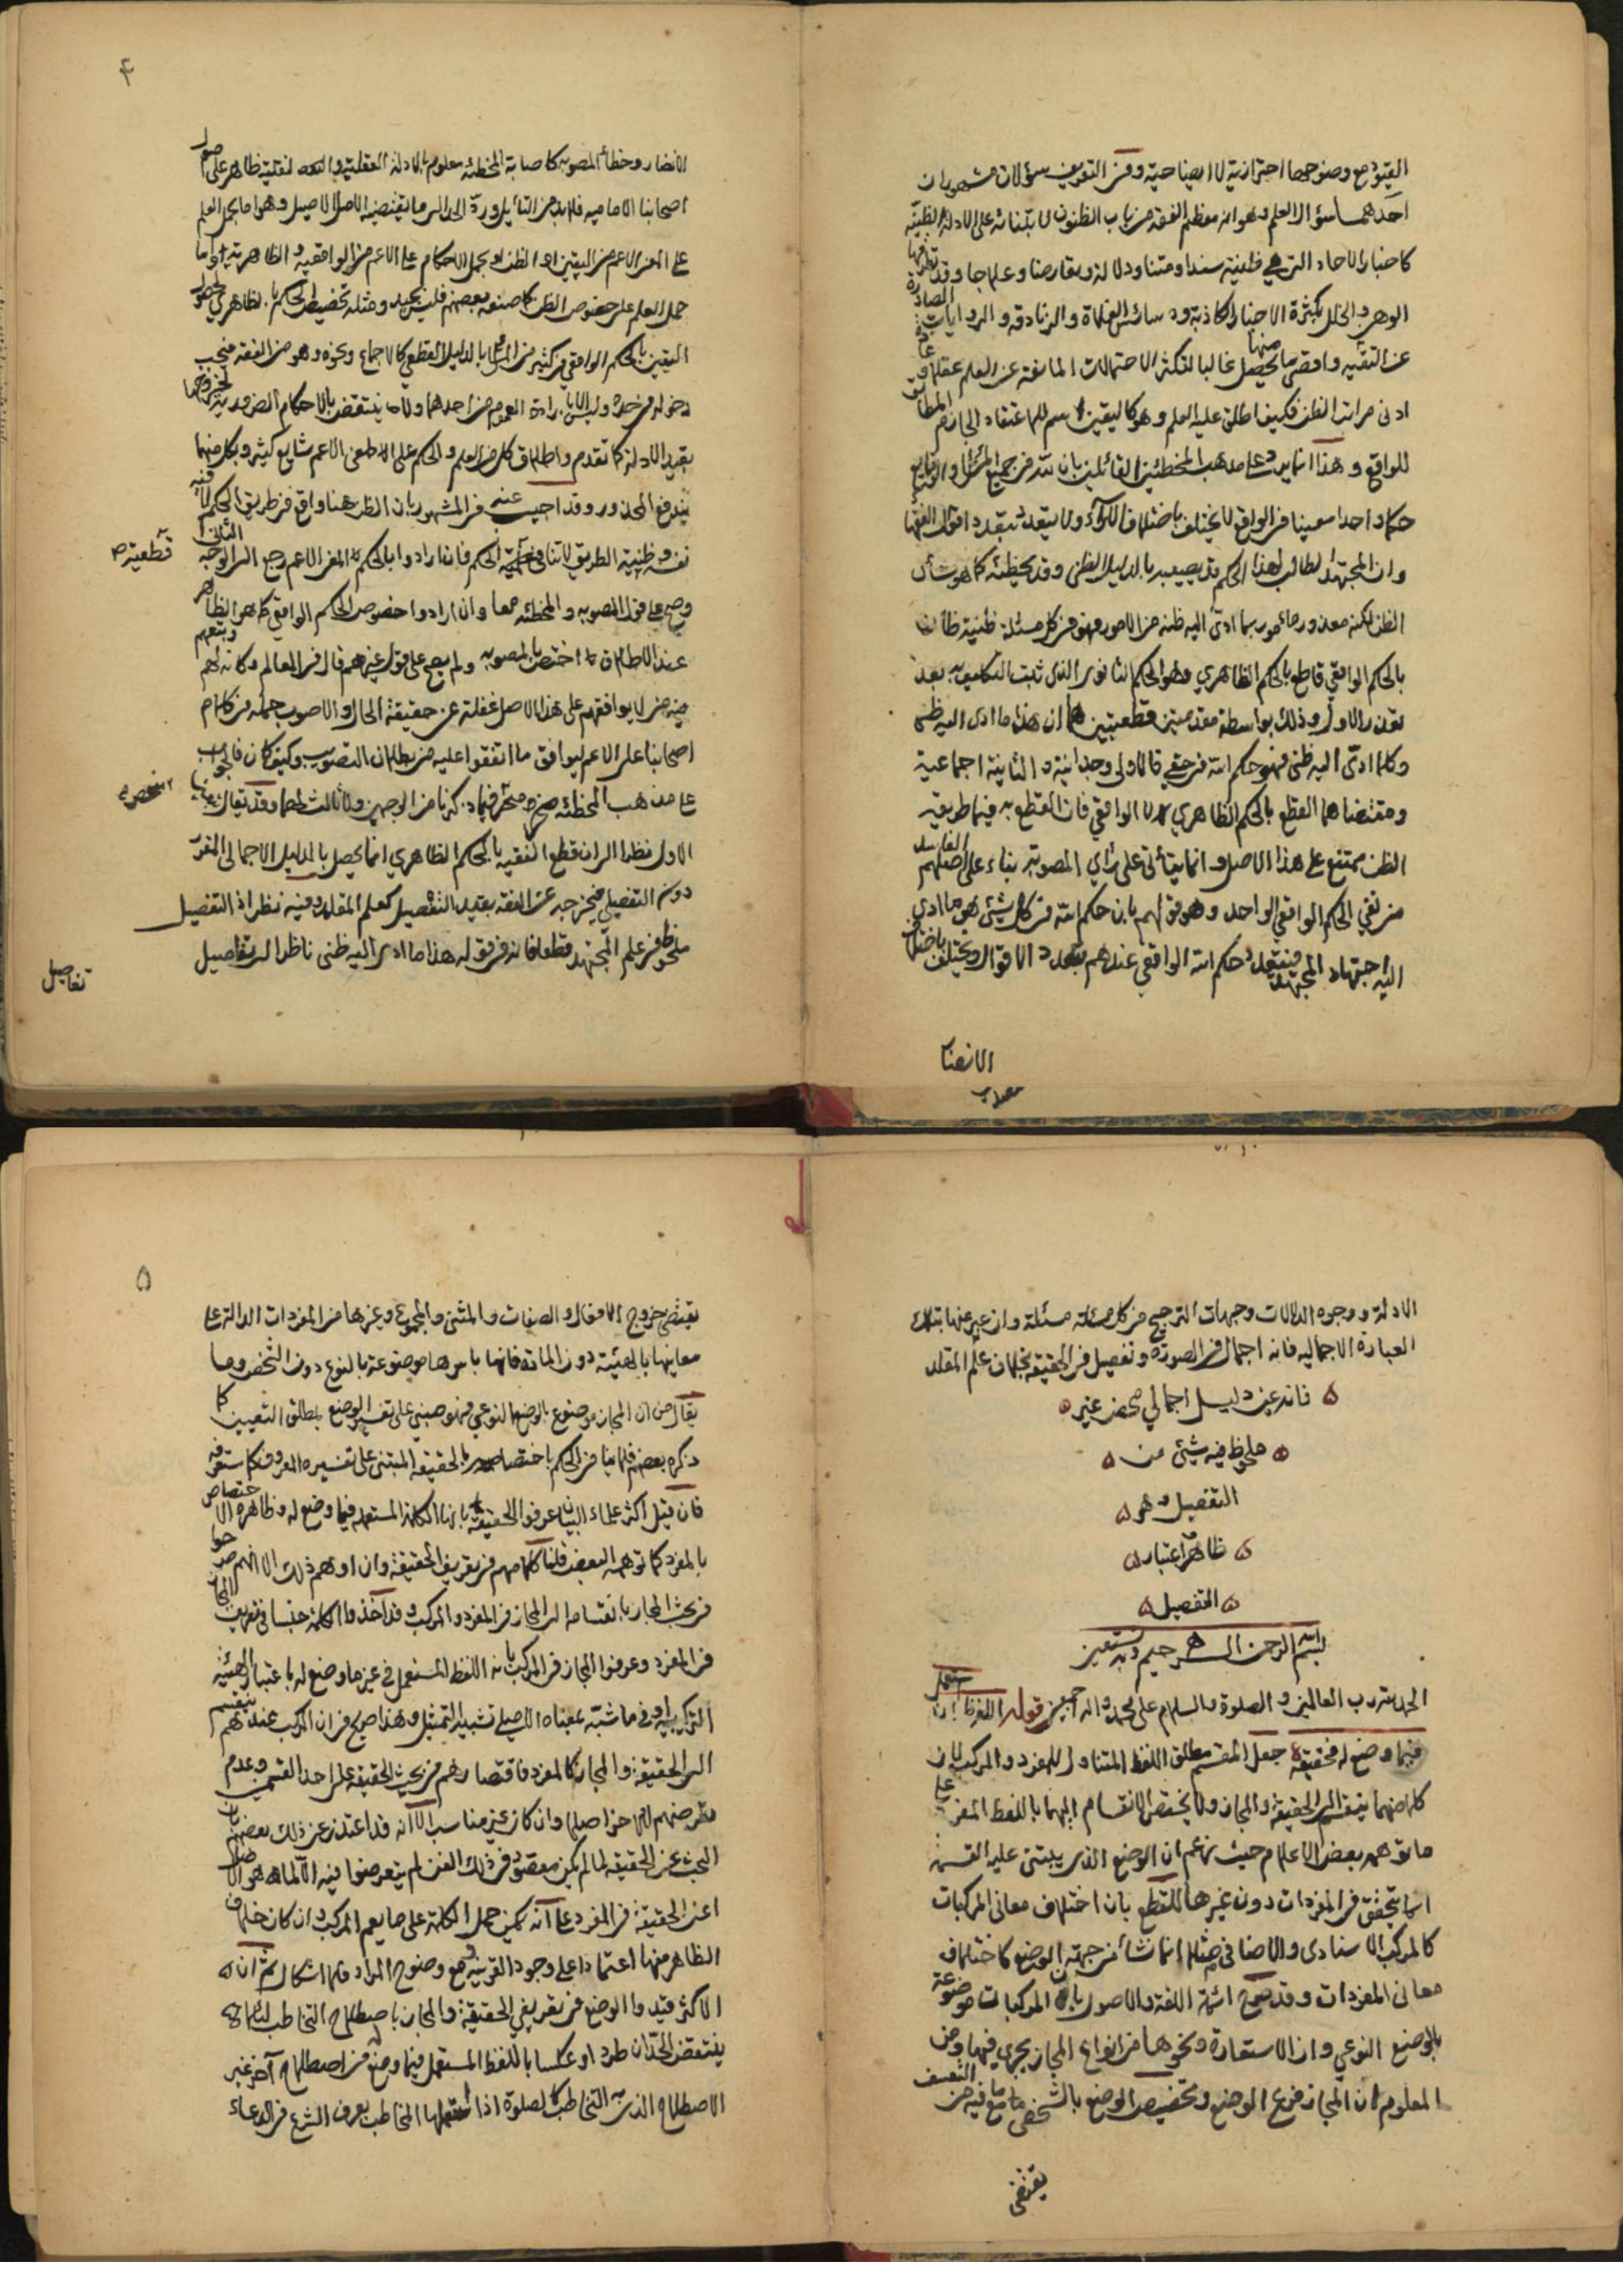 القيود مع وضوحها احترازية لا ايضاحية وفى التعريف سؤالات مشهوران
احدهما سؤال العلم وهو انه معظم الفقه من باب الظنون لابتنائه على الادلة الظنية
كاخبار الاحاد التى هى ظنية سندا ومتنا ودلالة وتعارضا وعلاجا وقد
الوهن والخلل بكثرة الاخبار الكاذبة ودسائس الغلاة والزنادقه والروايات الصادرة
عن التقيه واقصى ما يحصل منها غالبا لتكثر الاحتمالات المانعة عن العلم عقلا وعادة
ادنى مراتب الظن فكيف اطلق عليه العلم وهو كاليقين اسم للاعتقاد الجازم المطابق
للواقع وهذا انما يرد على مذهب المخطئة القائلين بان لله فى جميع المسائل والوقايع
حكما واحدا معينا فى الواقع لا يختلف باختلاف الآراء ولا يتعدد بتعدد اقوال الفقها
وان المجتهد الطالب لهذا الحكم قد يصيبه بالدليل الظنى وقد يخطئه كما هو شأن
الظن لكنه معذور ومأمور بما ادى اليه ظنه من الامور فهو فى كل مسئلة ظنية ظان
بالحكم الواقعي قاطع بالحكم الظاهري وهو الحكم الثانوى الذى ثبت التكليف به بعد
تعذر الاول وذلك بواسطة مقدمتين قطعيتين هما ان هذا ما ادى اليه ظنى
وكلما ادى اليه ظنى فهو حكم الله فى حقى فالاولى وجدانية والثانية اجماعية
ومقتضاهما القطع بالحكم الظاهري لا الواقعي فان القطع به فيما طريقه
الظن ممتنع على هذا الاصل وانما يتأتى على رأي المصوبة بناء على اصلهم الفاسد
من نفي الحكم الواقعي الواحد وهو قولهم بان حكم الله فى كل شيئ هو ما ادى
اليه اجتهاد المجتهد فيتعدد حكم الله الواقعى عندهم بتعدد الاقوال ويختلف باختلاف
الانظار
۴
الانظار وخطأ المصوبه كاصابة المخطئه معلوم بالادلة العقلية والنقلية ظاهر على اصول
اصحابنا الامامیه فلا بد من التأويل ورده الى ما يقتضيه الاصل الاصيل وهو اما بحمل العلم
على المعنى الاعم من اليقين او الظن او بحمل الاحكام على الاعم من الواقعيه والظاهرية واما
حمل العلم على خصوص الظن كما صنعه بعضهم فليس بجيد ومثله تخصيص الحكم بالظاهري لحصول
اليقين بالحكم الواقعي فى كثير من المسائل بالدليل القطعي كالاجماع ونحوه وهو من الفقه فيجب
دخوله فى حده وليس الا بارادة العموم من احدهما ولا ينتقض بالاحكام الضرورية لخروجها
بقيد الادلة كما تقدم واطلاق كل من العلم والحكم على المعنى الاعم شايع كثير وبكل منهما
يندفع المحذور وقد اجيب عنه فى المشهور بان الظن هنا واقع فى طريق الحكم لا فيه
نفسه وظنية الطريق لا تنافى قطعية الحكم فان ارادوا بالحكم المعنى الاعم رجع الى الوجه الثانى
قطعية ص
وصح على قول المصوبه والمخطئه معا وان ارادوا خصوص الحكم الواقعي كما هو الظاهر
عند الاطلاق اختص بالمصوبه ولم يصح على قول غيرهم قال فى المعالم وكانه لهم وتبعهم
فيه من لا يوافقهم على هذا الاصل غفلة عن حقيقة الحال والاصوب حمله فى كلام
اصحابنا على الاعم ليوافق ما اتفقوا عليه من بطلان التصويب وكيف كان فالجواب
على مذهب المخطئة منحصر فيما ذكرنا من الوجهين ولا ثالث لهما وقد يقال
منحصر
الاول نظرا الى ان قطع الفقيه بالحكم الظاهري انما يحصل بالدليل الاجمالى المقرر
دون التفصيلى فيخرج عن الفقه بقيد التفصيل كعلم المقلد وفيه نظر اذ التفصيل
ملحوظ فى علم المجتهد قطعا فانه فى قوله هذا ما ادى اليه ظنى ناظر الى تفاصيل
تفاصيل
الادلة ووجوه الدلالات وجهات الترجيح فى كل مسئلة مسئلة وان عبر عنها بتلك
العبارة الاجمالية فانه اجمال فى الصورة وتفصيل فى الحقيقة بخلاف علم المقلد
فانه عن دليل اجمالي محض غير
ملحوظ فيه شيئ من
التفصيل وهو
ظاهر اعتبار
التفصيل
بسم الله الرحمن الرحيم وبه نستعين
الحمد لله رب العالمين والصلوة والسلام على محمد واله اجمعين قوله اللفظ ان استعمل
فيما وضع له فحقيقة جعل المقسم مطلق اللفظ المتناول للمفرد والمركب لان
كلا منهما ينقسم الى الحقيقة والمجاز ولا يختص الانقسام اليهما باللفظ المفرد على
ما توهمه بعض الاعلام حيث زعم ان الوضع الذى يبتنى عليه القسمة
انما يتحقق فى المفردات دون غيرها للقطع بان اختلاف معانى المركبات
كالمركب الاسنادى والاضافى مثلا انما نشأ من جهة الوضع كاختلاف
معانى المفردات وقد صرح ائمة اللغة والاصول بان المركبات موضوعة
بالوضع النوعي وان الاستعارة ونحوها من انواع المجاز يجرى فيها ومن
المعلوم ان المجاز فرع الوضع وتخصيص الوضع بالشخصى مع ما فيه من التعسف
يقتضى
۵
يقتضى خروج الافعال والصفات والمثنى والمجموع وغيرها من المفردات الدالة على
معانيها بالهيئة دون المادة فانها باسرها موضوعة بالنوع دون الشخص وما
يقال من ان المجاز موضوع بالوضع النوعي فهو مبنى على تفسير الوضع بمطلق التعيين كما
ذكره بعضهم فلا ينافى الحكم باختصاصه بالحقيقة المبتنى على تفسيره المعروف كما ستعرفه
فان قيل اكثر علماء البيان عرفوا الحقيقة بانها الكلمة المستعملة فيما وضع له وظاهره الاختصاص
بالمفرد كما توهمه البعض قلنا كلامهم فى تعريف الحقيقة وان اوهم ذلك الا انهم صرحوا
فى بحث المجاز بانقسامه الى المجاز فى المفرد والمركب وقد اخذوا الكلمة جنسا فى تعريف المجاز
فى المفرد وعرفوا المجاز فى المركب بانه اللفظ المستعمل فى غير ما وضع له باعتبار الهيئة
التركيبيه او فى ما شبه بمعناه الاصلى تشبيه التمثيل وهذا صريح فى ان المركب عندهم ينقسم
الى الحقيقة والمجاز كالمفرد فاقتصارهم فى بحث الحقيقة على احد القسمين وعدم
تعرضهم للاخر اصلا وان كان غير مناسب الا انه قد اعتذر عن ذلك بعضهم بان
البحث عن الحقيقة لما لم يكن مقصودا فى ذلك الفن لم يتعرضوا فيه الا لما هو الاصل
اعنى الحقيقة فى المفرد على انه يمكن حمل الكلمة على ما يعم المركب وان كان خلاف
الظاهر منها اعتمادا على وجود القرينة مع وضوح المراد فلا اشكال ثم ان
الاكثر قيدوا الوضع فى تعريفي الحقيقة والمجاز باصطلاح التخاطب لئلا
ينتقض الحدان طردا وعكسا باللفظ المستعمل فيما وضع له فى اصطلاح آخر غير
الاصطلاح الذى به التخاطب كالصلوة اذا استعملها المخاطب بعرف الشرع فى الدعاء